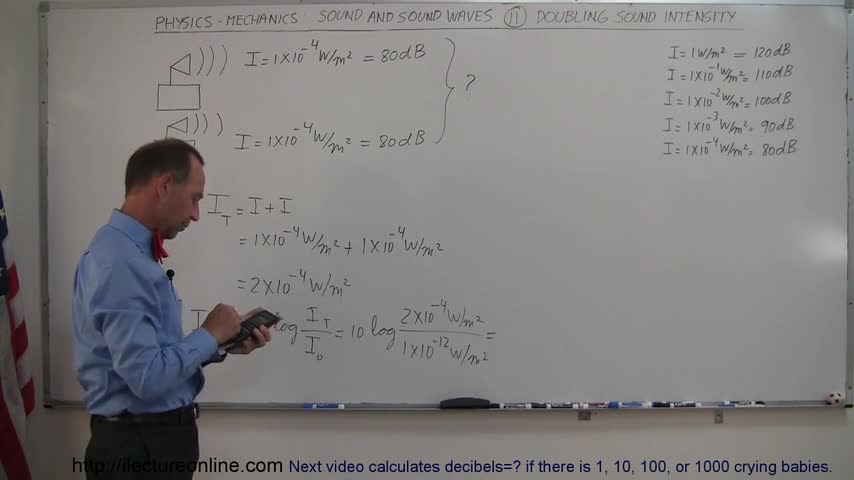 PHYSICS - MECHANICS: SOUND AND SOUND WAVES 11 DOUBLING SOUND INTENSITY
I = 1×10⁻⁴ W/m² = 80dB
?
I = 1×10⁻⁴ W/m² = 80dB
I = 1 W/m² = 120dB
I = 1×10⁻¹ W/m² = 110dB
I = 1×10⁻² W/m² = 100dB
I = 1×10⁻³ W/m² = 90dB
I = 1×10⁻⁴ W/m² = 80dB
I_T = I + I
= 1×10⁻⁴ W/m² + 1×10⁻⁴ W/m²
= 2×10⁻⁴ W/m²
I log I_T/I₀ = 10 log 2×10⁻⁴ W/m²/1×10⁻¹² W/m² =
http://ilectureonline.com Next video calculates decibels=? if there is 1, 10, 100, or 1000 crying babies.